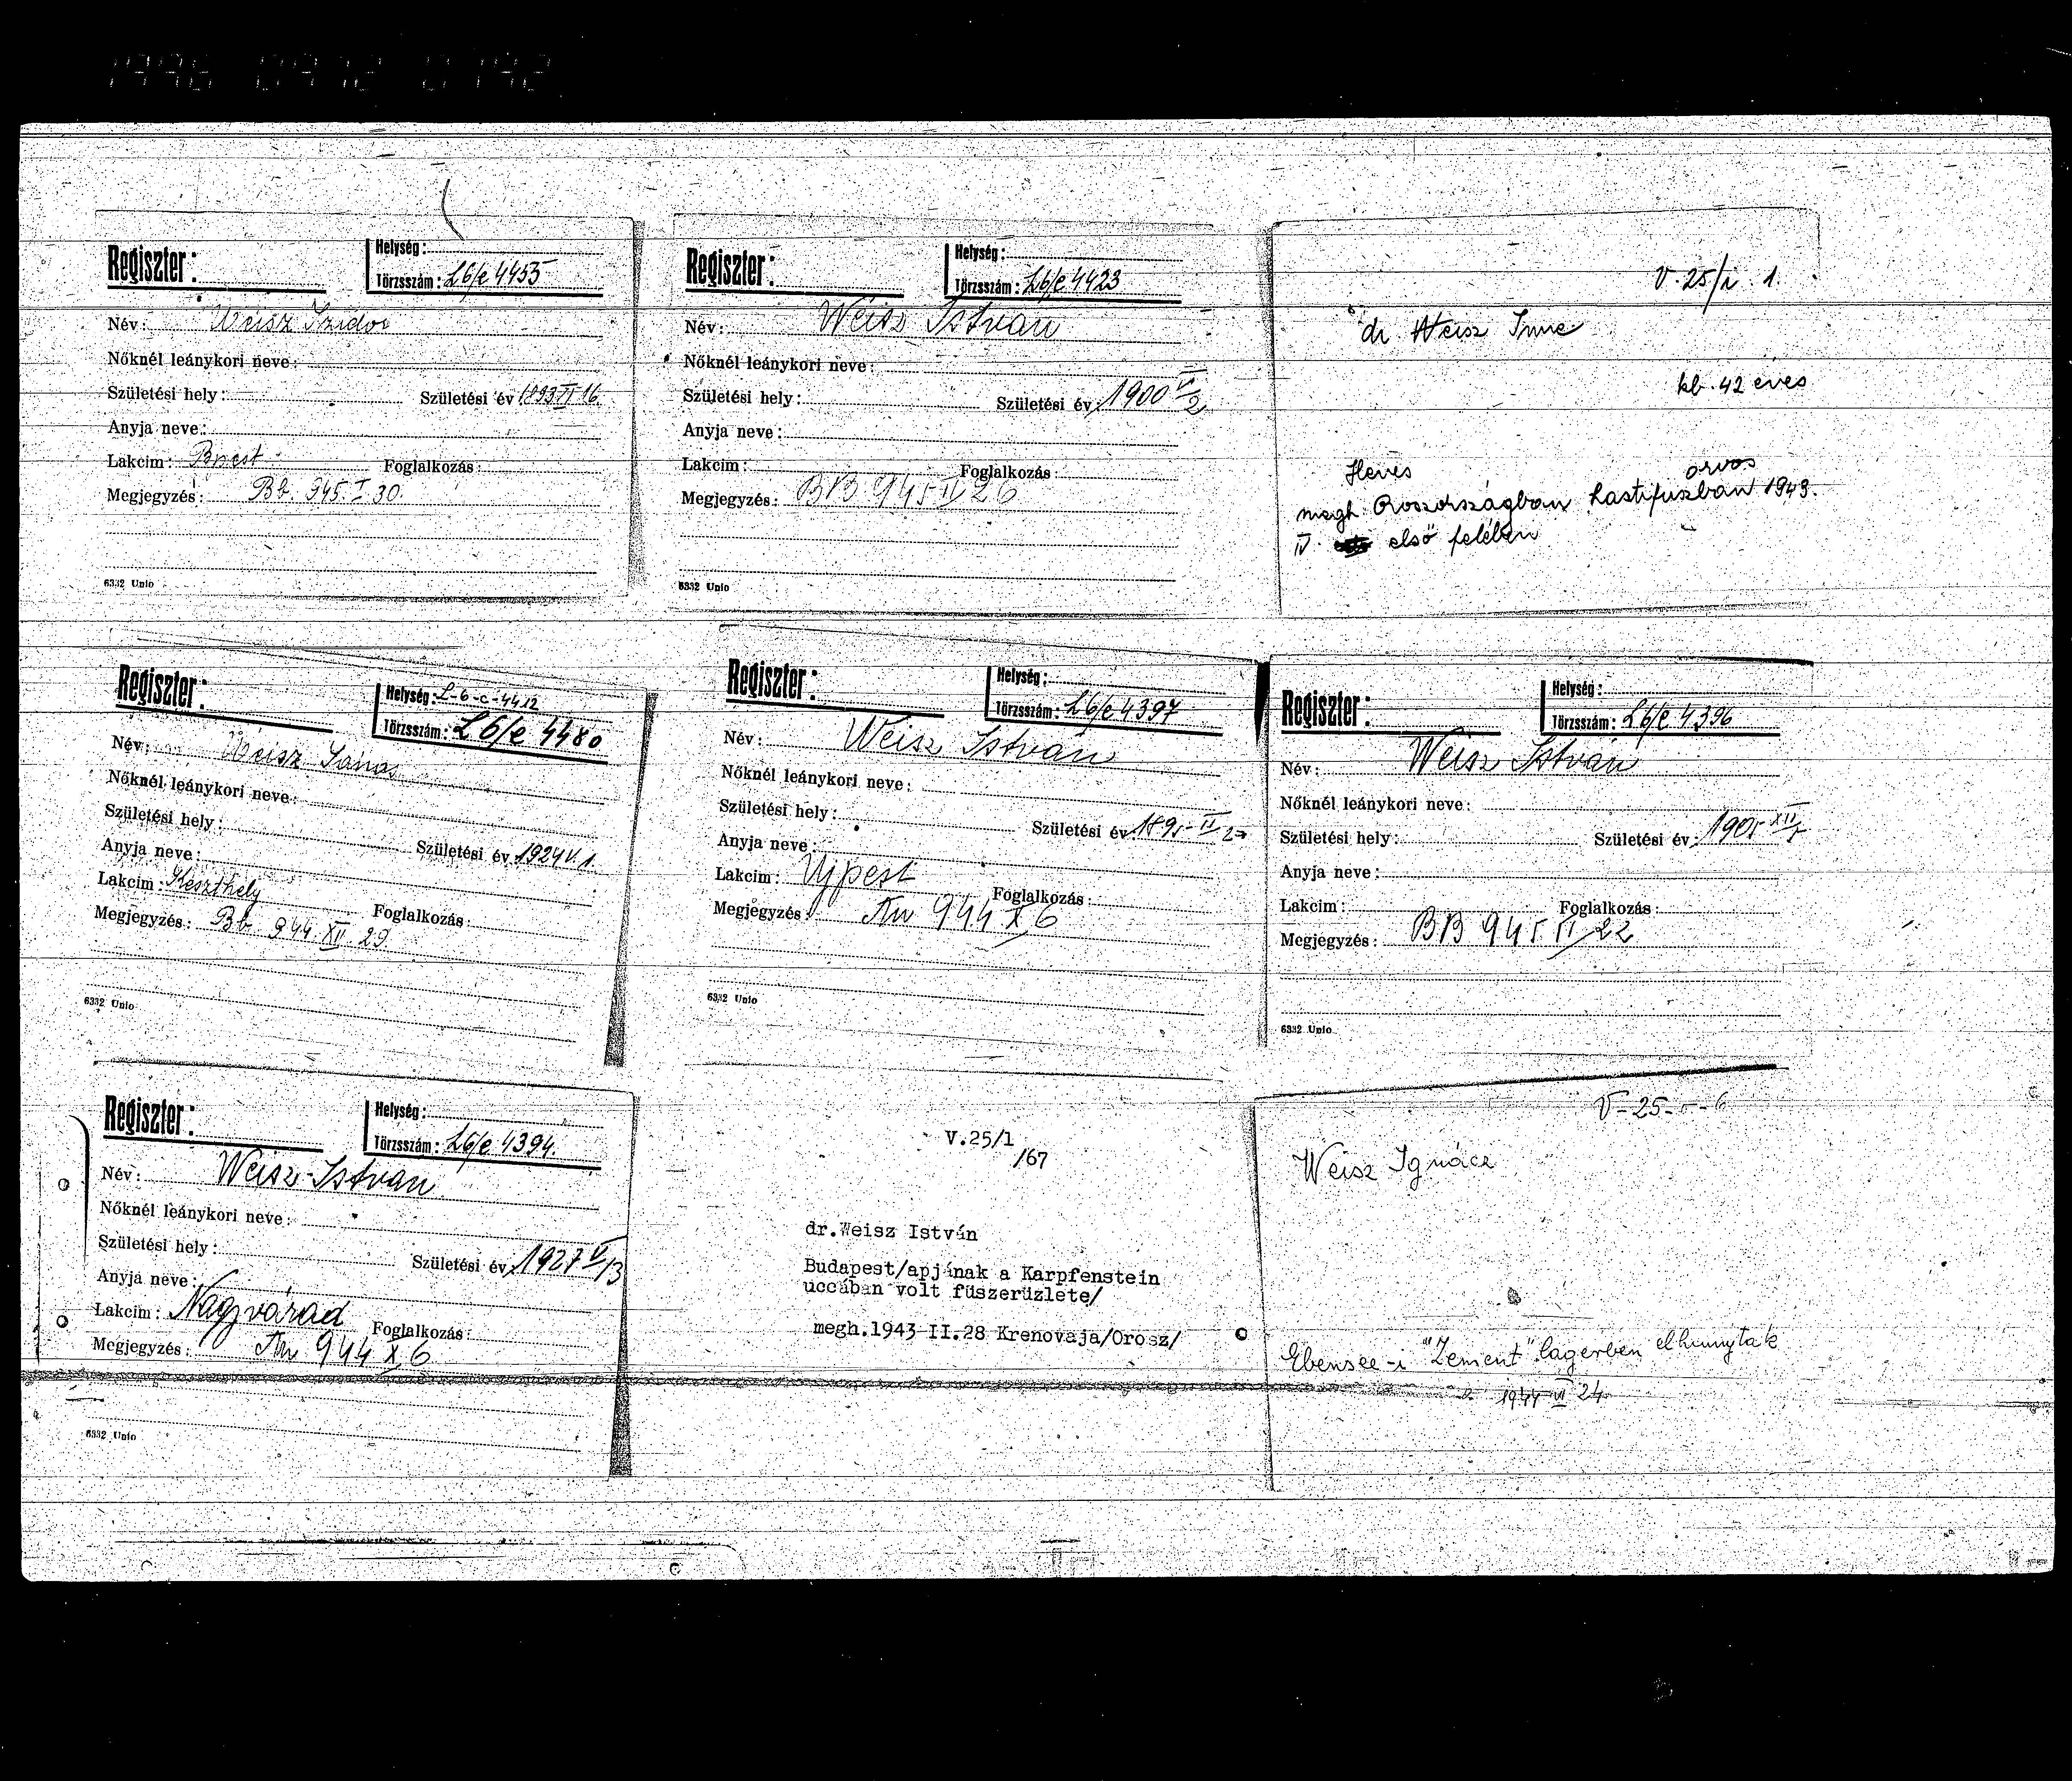 1996 09 12 0142
Regiszter:
Helység:
Törzsszám: L6/e 4455
Név: Weisz Izidor
Nőknél leánykori neve:
Születési hely: Születési év 1893 VI 16.
Anyja neve:
Lakcim: Bpest Foglalkozás:
Megjegyzés: Bb. 945. I 30.
6332 Unio
Regiszter:
Helység:
Törzsszám: L6/e 4423
Név: Weisz István
Nőknél leánykori neve:
Születési hely: Születési év 1900 VI/2
Anyja neve:
Lakcim: Foglalkozás:
Megjegyzés: BB 945 II 26
6332 Unio
V. 25/1. 1.
dr Weisz Imre
kb. 42 éves
Heves orvos
megh. Oroszországban hastifuszban 1943.
IV. első felében
Regiszter:
Helység: L-6-c-4412
Törzsszám: L6/e 4480
Név: Weisz János
Nőknél leánykori neve:
Születési hely: Születési év 1924 V. 1.
Anyja neve:
Lakcim: Keszthely Foglalkozás:
Megjegyzés: Bb. 944. XII 29
6332 Unio
Regiszter:
Helység:
Törzsszám: L6/e 4397
Név: Weisz István
Nőknél leánykori neve:
Születési hely: Születési év 1895 II
Anyja neve:
Lakcim: Ujpest Foglalkozás:
Megjegyzés: An 944 X 6
6332 Unio
Regiszter:
Helység:
Törzsszám: L6/e 4396
Név: Weisz István
Nőknél leánykori neve:
Születési hely: Születési év: 1905 XII
Anyja neve:
Lakcim: Foglalkozás:
Megjegyzés: BB 945 II 22
6332 Unio
Regiszter:
Helység:
Törzsszám: L6/e 4394.
Név: Weisz István
Nőknél leánykori neve:
Születési hely: Születési év 1927 V/13
Anyja neve:
Lakcim: Nagyvárad Foglalkozás:
Megjegyzés: An 944 X 6
6332 Unio
V.25/1
/67
dr.Weisz István
Budapest/apjának a Karpfenstein
uccában volt füszerüzlete/
megh.1943-II.28 Krenovaja/Orosz/
V-25- - 6
Weisz Ignácz
Ebensee-i "Zement" lagerben elhunytak
1944 VI 24